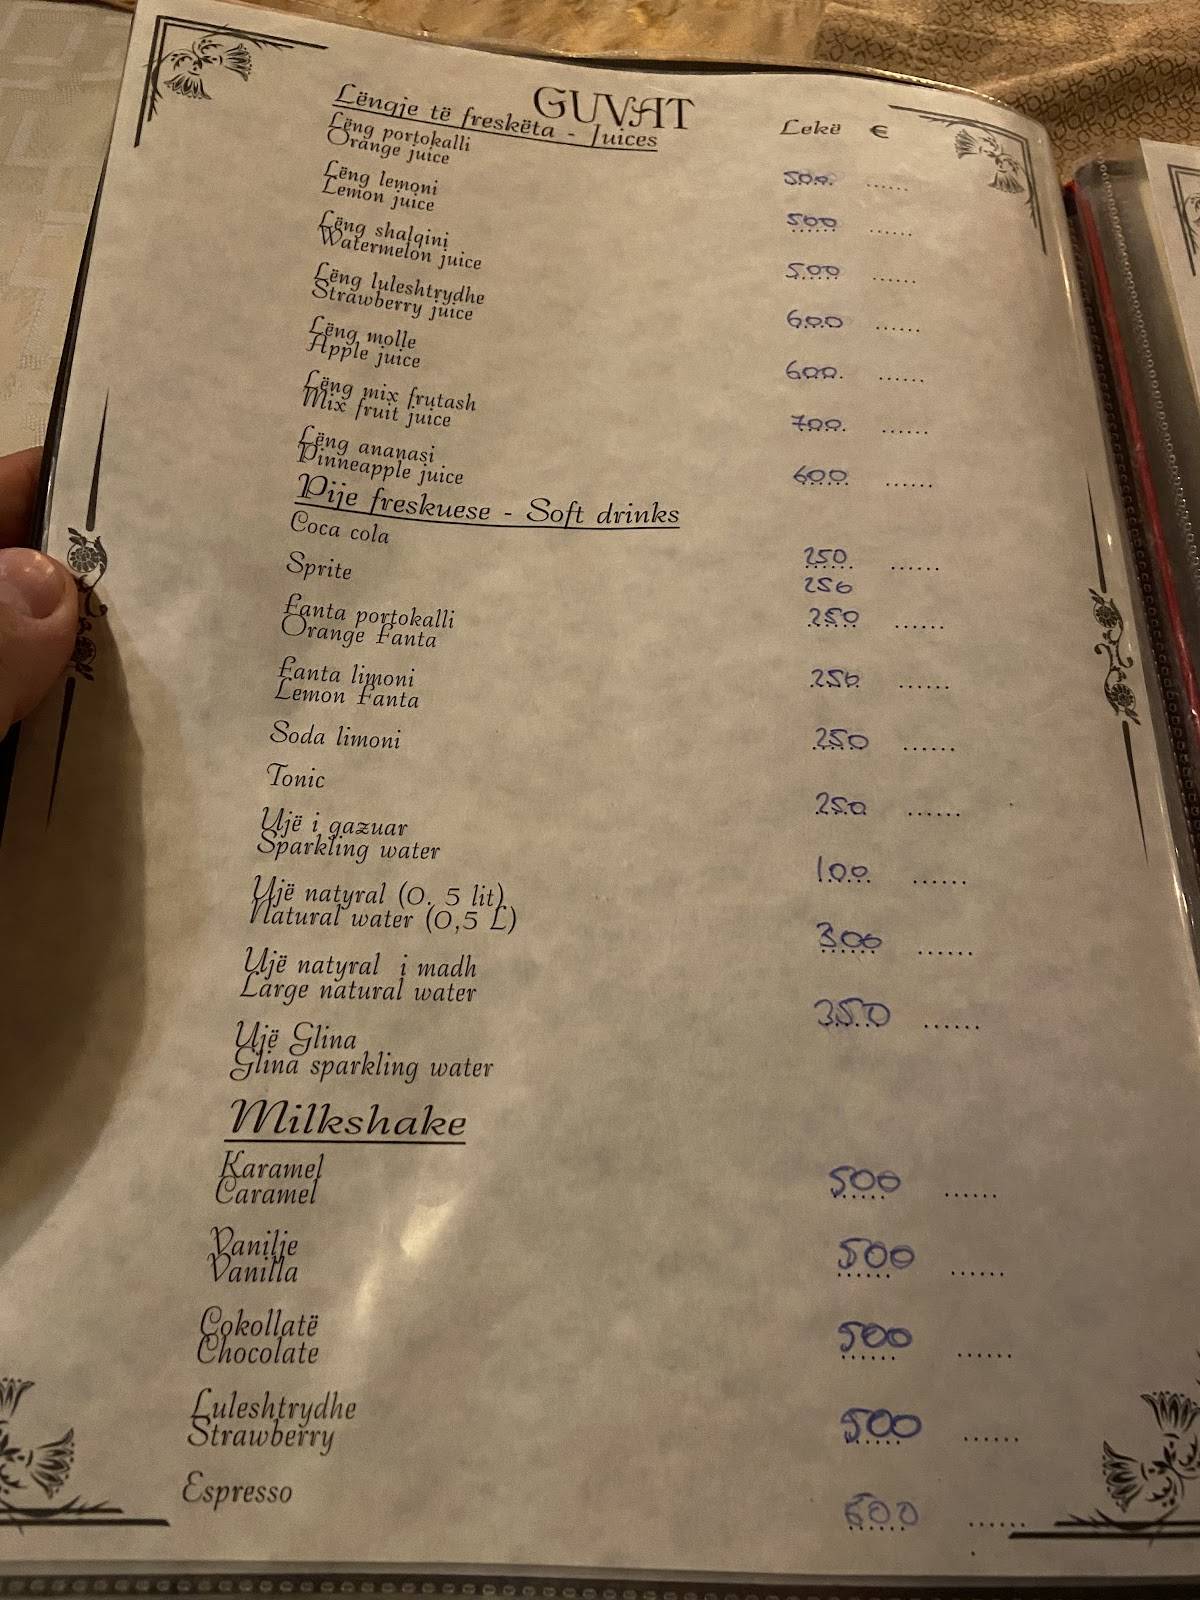 GUVAT
Lëngje të freskëta - Juices Lekë €
Lëng portokalli
Orange juice 500
Lëng lemoni
Lemon juice 500
Lëng shalqini
Watermelon juice 500
Lëng luleshtrydhe
Strawberry juice 600
Lëng molle
Apple juice 600
Lëng mix frutash
Mix fruit juice 700
Lëng ananasi
Pinneapple juice 600
Pije freskuese - Soft drinks
Coca cola 250
Sprite 250
Fanta portokalli
Orange Fanta 250
Fanta limoni
Lemon Fanta 250
Soda limoni 250
Tonic 250
Ujë i gazuar
Sparkling water 100
Ujë natyral (0. 5 lit)
Natural water (0,5 L) 300
Ujë natyral i madh
Large natural water 350
Ujë Glina
Glina sparkling water
Milkshake
Karamel
Caramel 500
Vanilje
Vanilla 500
Çokollatë
Chocolate 500
Luleshtrydhe
Strawberry 500
Espresso 600